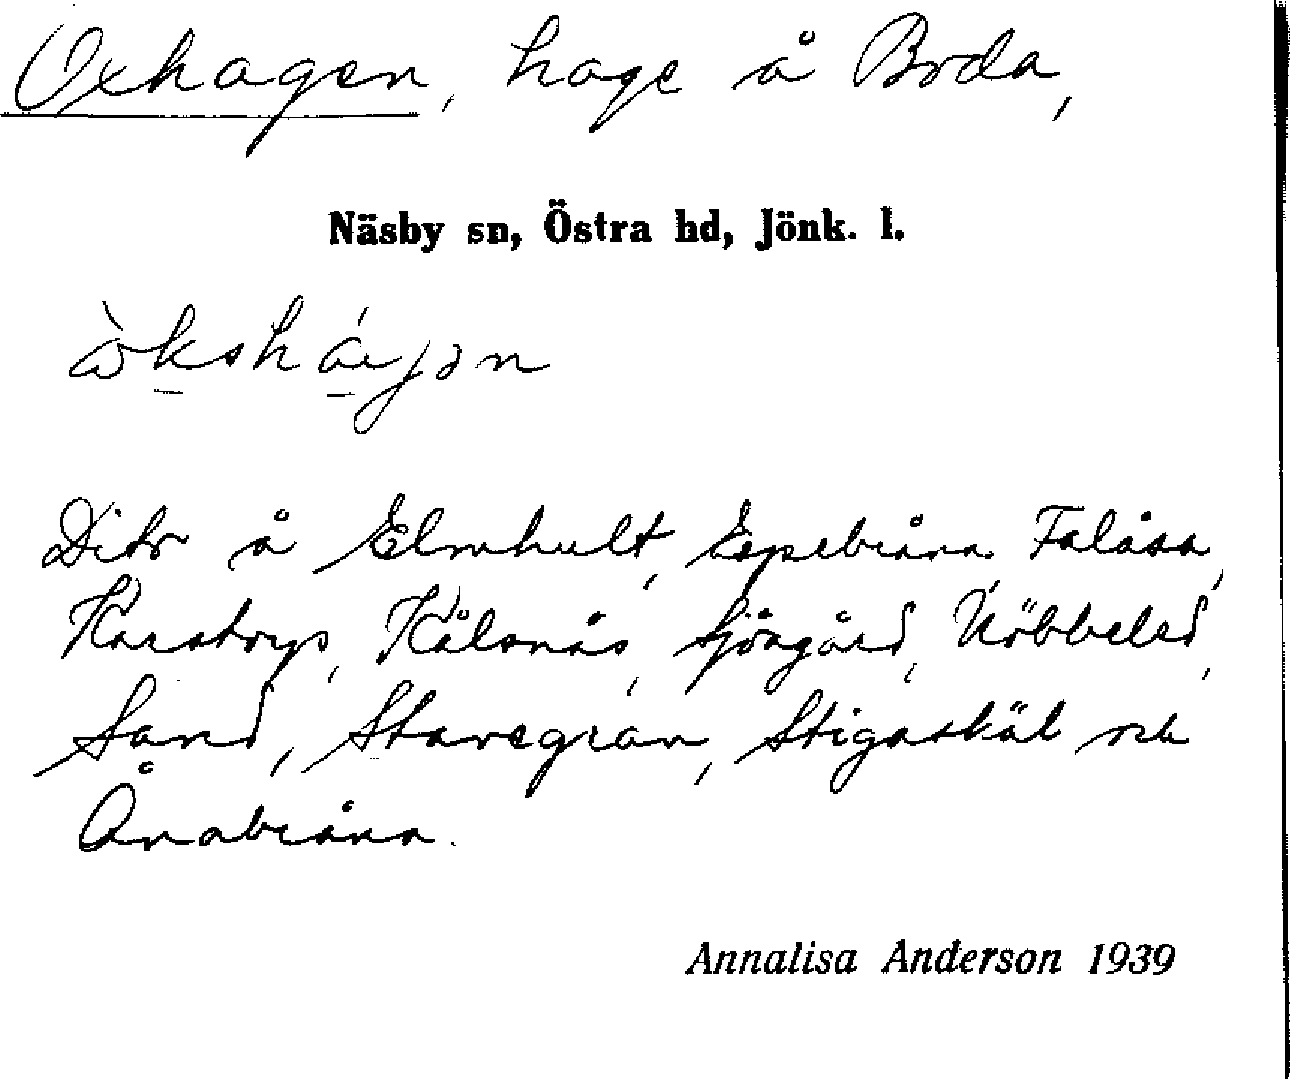 Oxhagen, hage å Boda,
Näsby sn, Östra hd, Jönk. l.
Dito å Elmhult, Espebråna, Falåsa,
Karstorp, Kålsnäs, Sjöagård, Nöbbeled,
Sand, Stavsgran, Stigaskäl och
Ånabråna.
Annalisa Anderson 1939